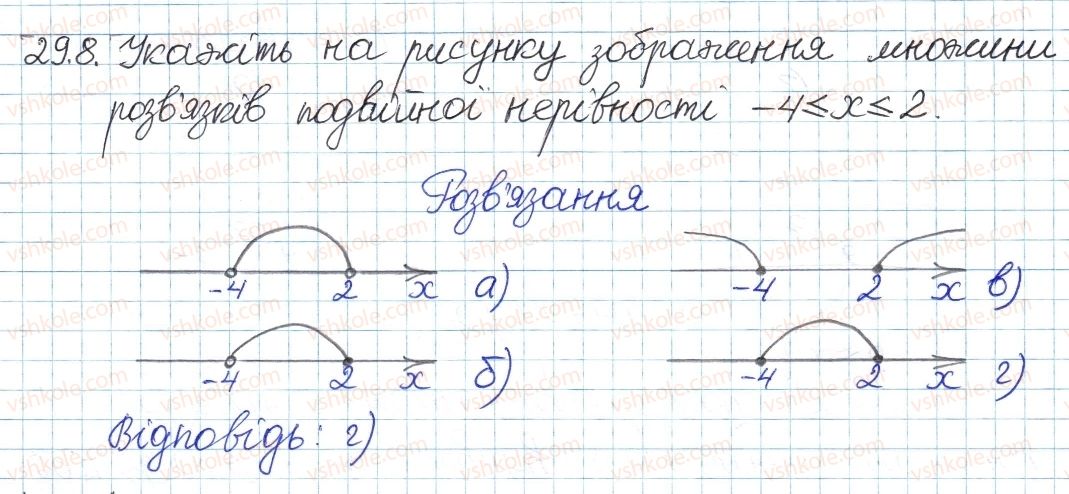 29.8. Укажіть на рисунку зображення множини
розв'язків подвійної нерівності -4≤x≤2.
Розв'язання
-4 2 x а)
-4 2 x в)
-4 2 x б)
-4 2 x г)
Відповідь: г)
vshkole.com